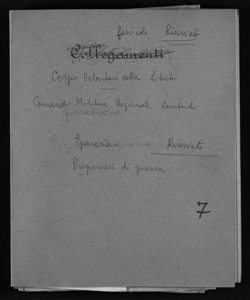 fascicolo Riservato
Collegamenti
Corpo Volontari della Libertà
Comando Militare Regionale Lombardo
Operazione
Epurazione Riservato
Prigionieri di guerra
7